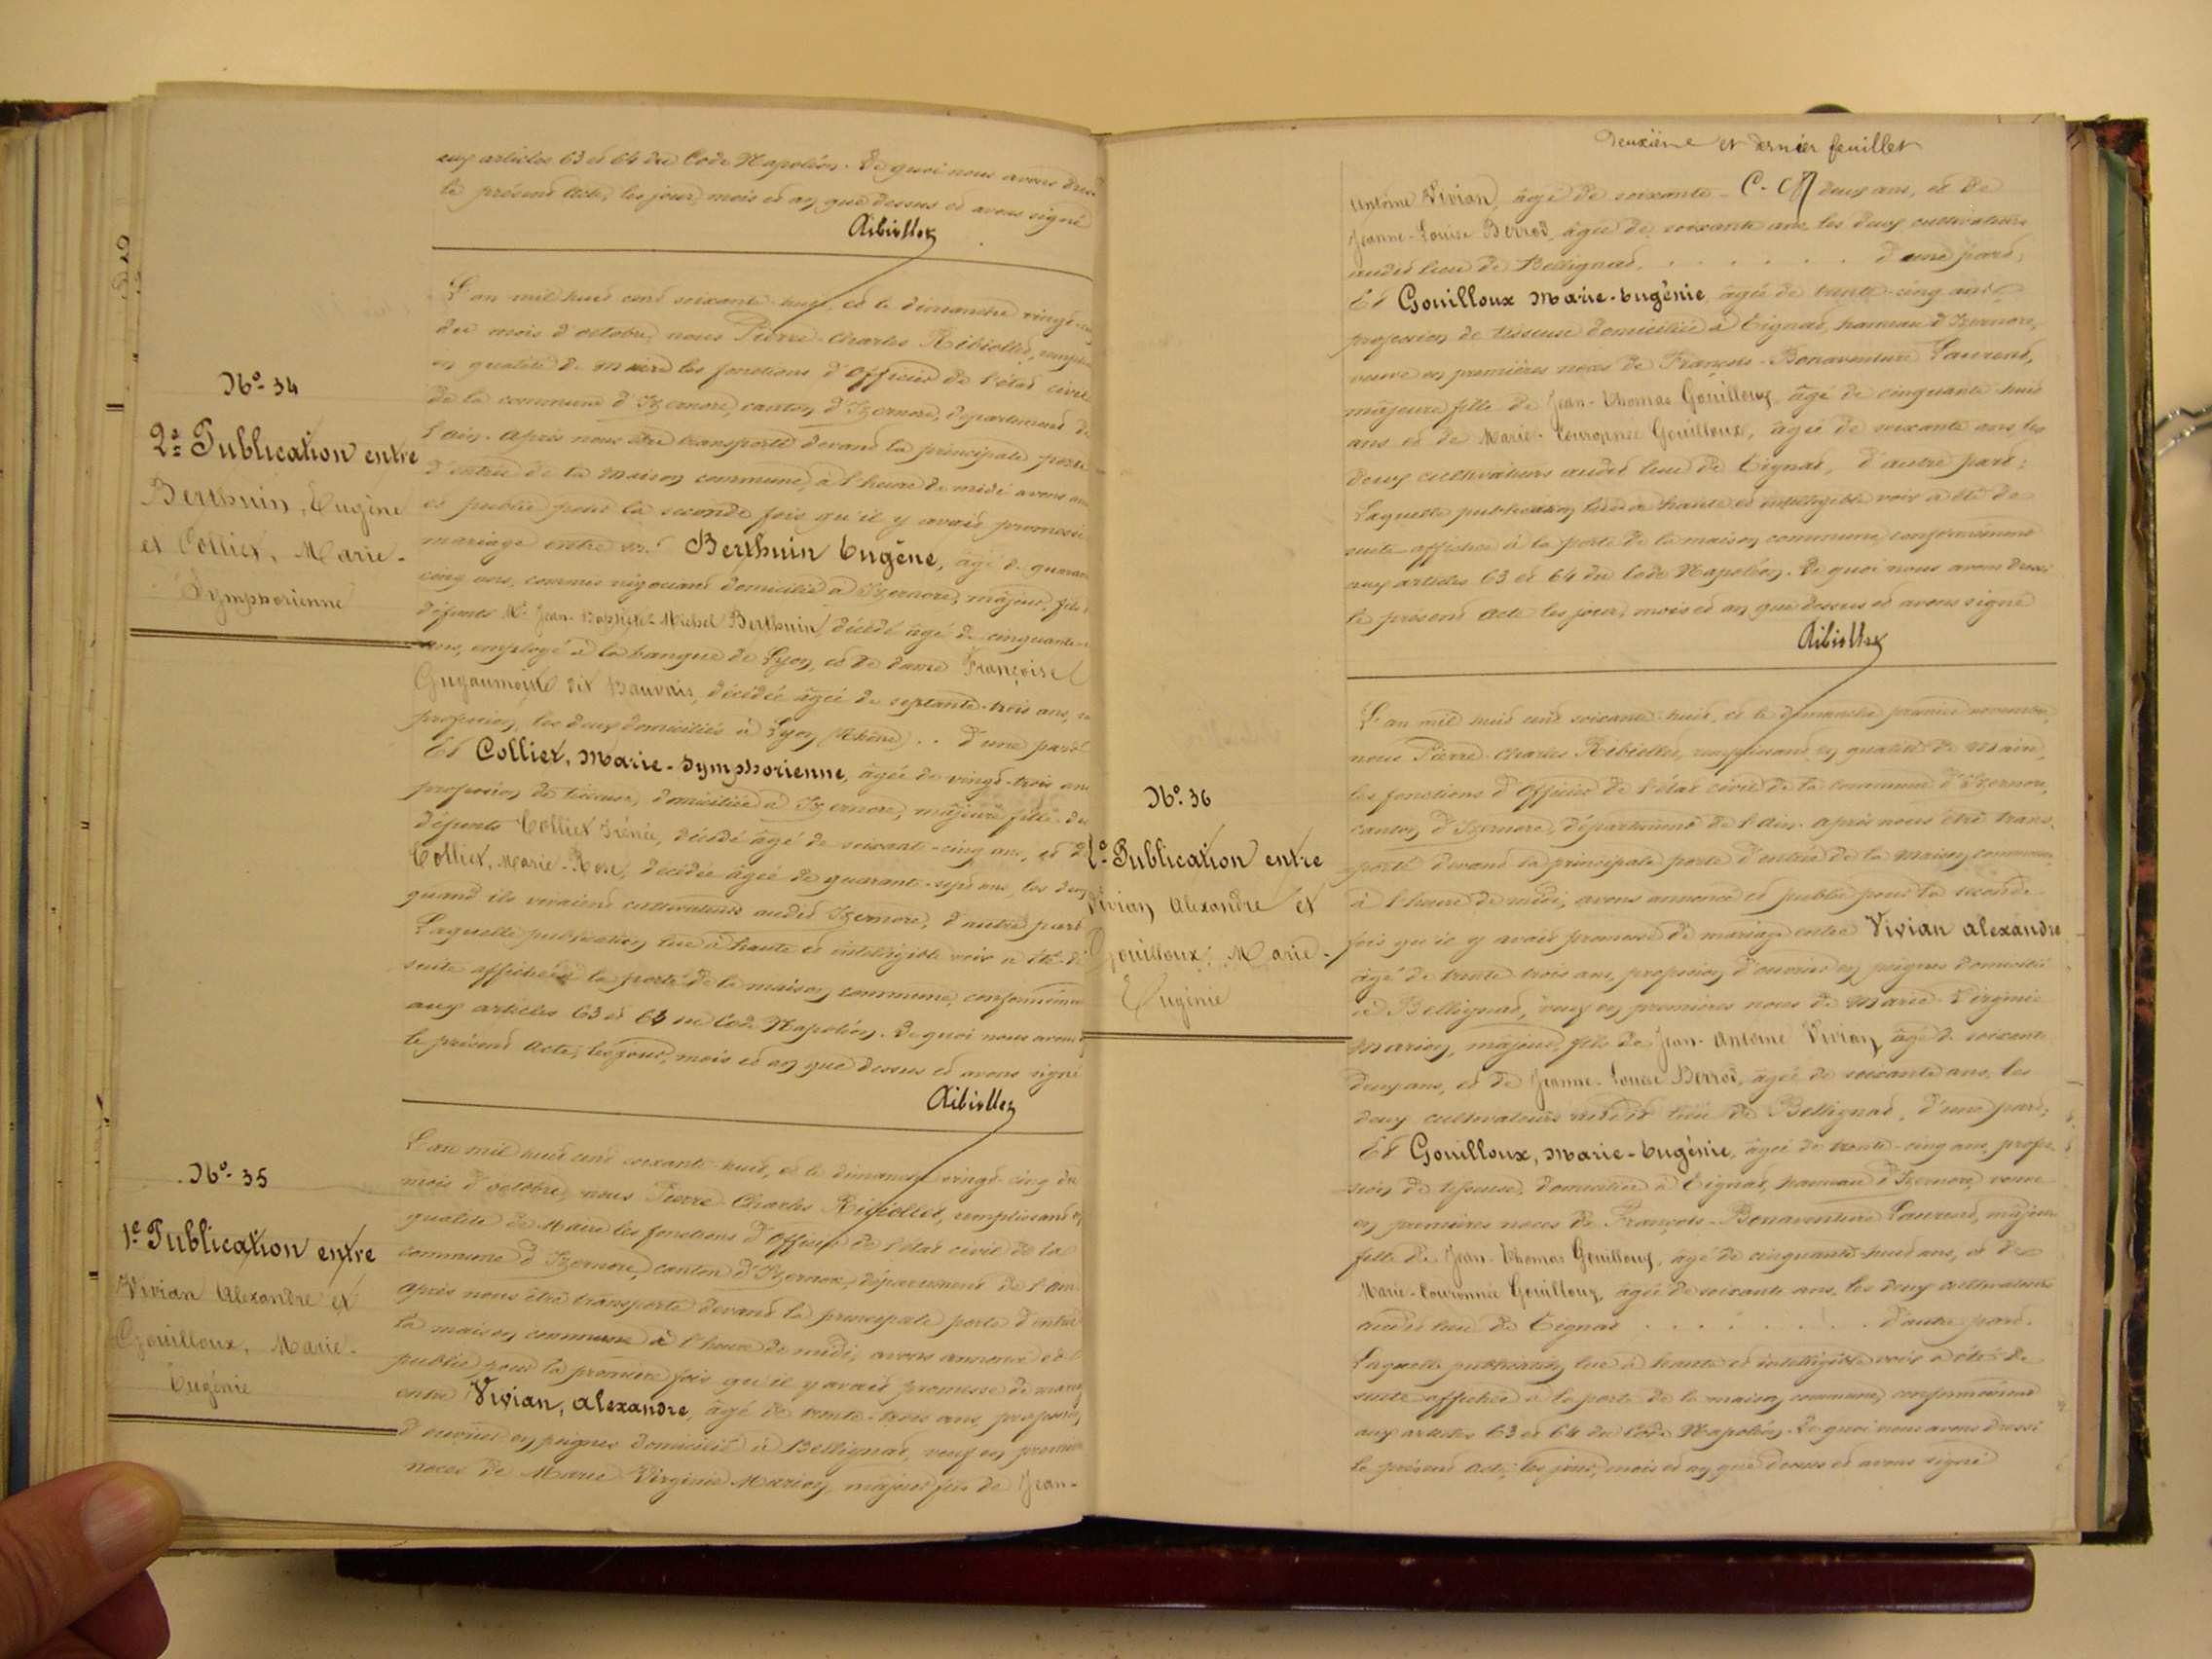 aux articles 63 et 64 du Code Napoléon. De quoi nous avons
le présent acte, les jour, mois et an que dessus et avons signé
Ribiollet
N° 34
2e Publication entre
Berthuin, Eugène
et Colliet, Marie-
Symphorienne
L'an mil huit cent soixante huit, et le dimanche vingt
du mois d'octobre, nous Pierre-Charles Ribiollet,
en qualité de maire les fonctions d'Officier de l'état civil
de la commune d'Izernore, canton d'Izernore, département de
l'Ain. Après nous être transporté devant la principale porte
d'entrée de la maison commune, à l'heure de midi avons
et publié pour la seconde fois qu'il y avait promesse
mariage entre Mr. Berthuin Eugène, âgé de
cinq ans, commis négociant domicilié à Izernore, majeur, fils
défunts Mr. Jean-Baptiste-Michel Berthuin, décédé âgé de cinquante
ans, employé à la banque de Lyon, et de dame Françoise
dit Bauvais, décédée âgée de septante-trois ans,
profession, les deux domiciliés à Lyon (Rhône) .. d'une part
Et Colliet, Marie-Symphorienne, âgée de vingt-trois ans
profession de tisseuse, domiciliée à Izernore, majeure fille de
défunts Colliet Irénée, décédé âgé de soixante-cinq ans, et de
Colliet, Marie-Rose, décédée âgée de quarante-sept ans, les deux
quand ils vivaient cultivateurs audit Izernore, d'autre part
Laquelle publication lue à haute et intelligible voix a été de
suite affichée à la porte de la maison commune, conformément
aux articles 63 et 64 du Code Napoléon. De quoi nous avons
le présent acte, les jour, mois et an que dessus et avons signé
Ribiollet
N° 35
1e Publication entre
Vivian Alexandre et
Gouilloux, Marie-
Eugénie
L'an mil huit cent soixante huit, et le dimanche vingt-cinq du
mois d'octobre, nous Pierre Charles Ribiollet, remplissant en
qualité de Maire les fonctions d'Officier de l'état civil de la
commune d'Izernore, canton d'Izernore, département de l'Ain.
Après nous être transporté devant la principale porte d'entrée
la maison commune à l'heure de midi, avons annoncé et
publié pour la première fois qu'il y avait promesse de mariage
entre Vivian, Alexandre, âgé de trente-trois ans, profession
d'ouvrier en peignes domicilié à Bellignat, veuf en premières
noces de Marie Virginie Marion, majeur fils de Jean-
Deuxième et dernier feuillet
Antoine Vivian, âgé de soixante - C. deux ans, et de
Jeanne-Louise Berrod, âgée de soixante ans, les deux cultivateurs
audit lieu de Bellignat. . . . . . . d'une part,
Et Gouilloux Marie-Eugénie, âgée de trente-cinq ans,
profession de tisseuse domiciliée à Tignat, hameau d'Izernore,
veuve en premières noces de François-Bonaventure Laurent,
majeure fille de Jean-Thomas Gouilloux, âgé de cinquante huit
ans et de Marie-Couronnée Gouilloux, âgée de soixante ans, les
deux cultivateurs audit lieu de Tignat, d'autre part;
Laquelle publication lue à haute et intelligible voix a été de
suite affichée à la porte de la maison commune, conformément
aux articles 63 et 64 du Code Napoléon. De quoi nous avons dressé
le présent acte les jour, mois et an que dessus et avons signé
Ribiollet
N° 36
2e Publication entre
Vivian Alexandre et
Gouilloux, Marie-
Eugénie
L'an mil huit cent soixante-huit, et le dimanche premier novembre,
nous Pierre-Charles Ribiollet, remplissant en qualité de Maire,
les fonctions d'Officier de l'état civil de la commune d'Izernore,
canton d'Izernore, département de l'Ain. Après nous être trans-
porté devant la principale porte d'entrée de la maison commune,
à l'heure de midi, avons annoncé et publié pour la seconde
fois qu'il y avait promesse de mariage entre Vivian Alexandre
âgé de trente trois ans, profession d'ouvrier en peignes domicilié
à Bellignat, veuf en premières noces de Marie-Virginie
Marion, majeur, fils de Jean-Antoine Vivian, âgé de soixante
deux ans, et de Jeanne-Louise Berrod, âgée de soixante ans, les
deux cultivateurs audit lieu de Bellignat, d'une part;
Et Gouilloux, Marie-Eugénie, âgée de trente-cinq ans, profes-
sion de tisseuse, domiciliée à Tignat, hameau d'Izernore, veuve
en premières noces de François-Bonaventure Laurent, majeure
fille de Jean-Thomas Gouilloux, âgé de cinquante-huit ans, et de
Marie-Couronnée Gouilloux, âgée de soixante ans, les deux cultivateurs
audit lieu de Tignat . . . . . . . . d'autre part.
Laquelle publication lue à haute et intelligible voix a été de
suite affichée à la porte de la maison commune, conformément
aux articles 63 et 64 du Code Napoléon. De quoi nous avons dressé
le présent acte, les jour, mois et an que dessus et avons signé